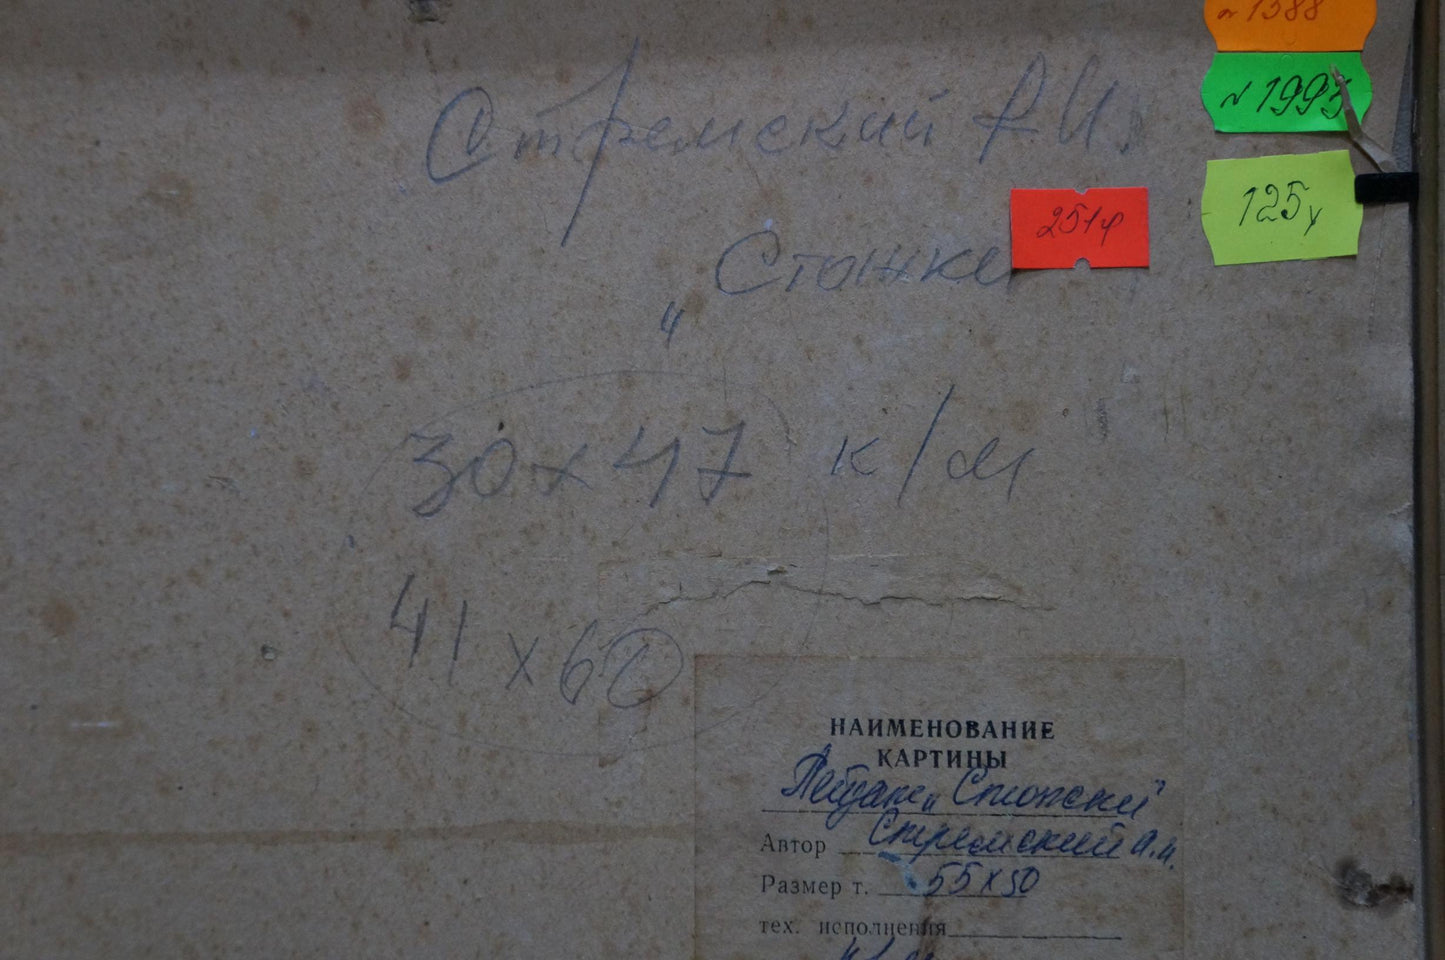 № 1388
№ 1995
Стремский А И.
125у
251ф
„ Стожки
30х47 к/м
41 х 60
НАИМЕНОВАНИЕ
КАРТИНЫ
Пейзаж „Стожски"
Автор Стремский А.И.
Размер т. 55х50
тех. исполнения